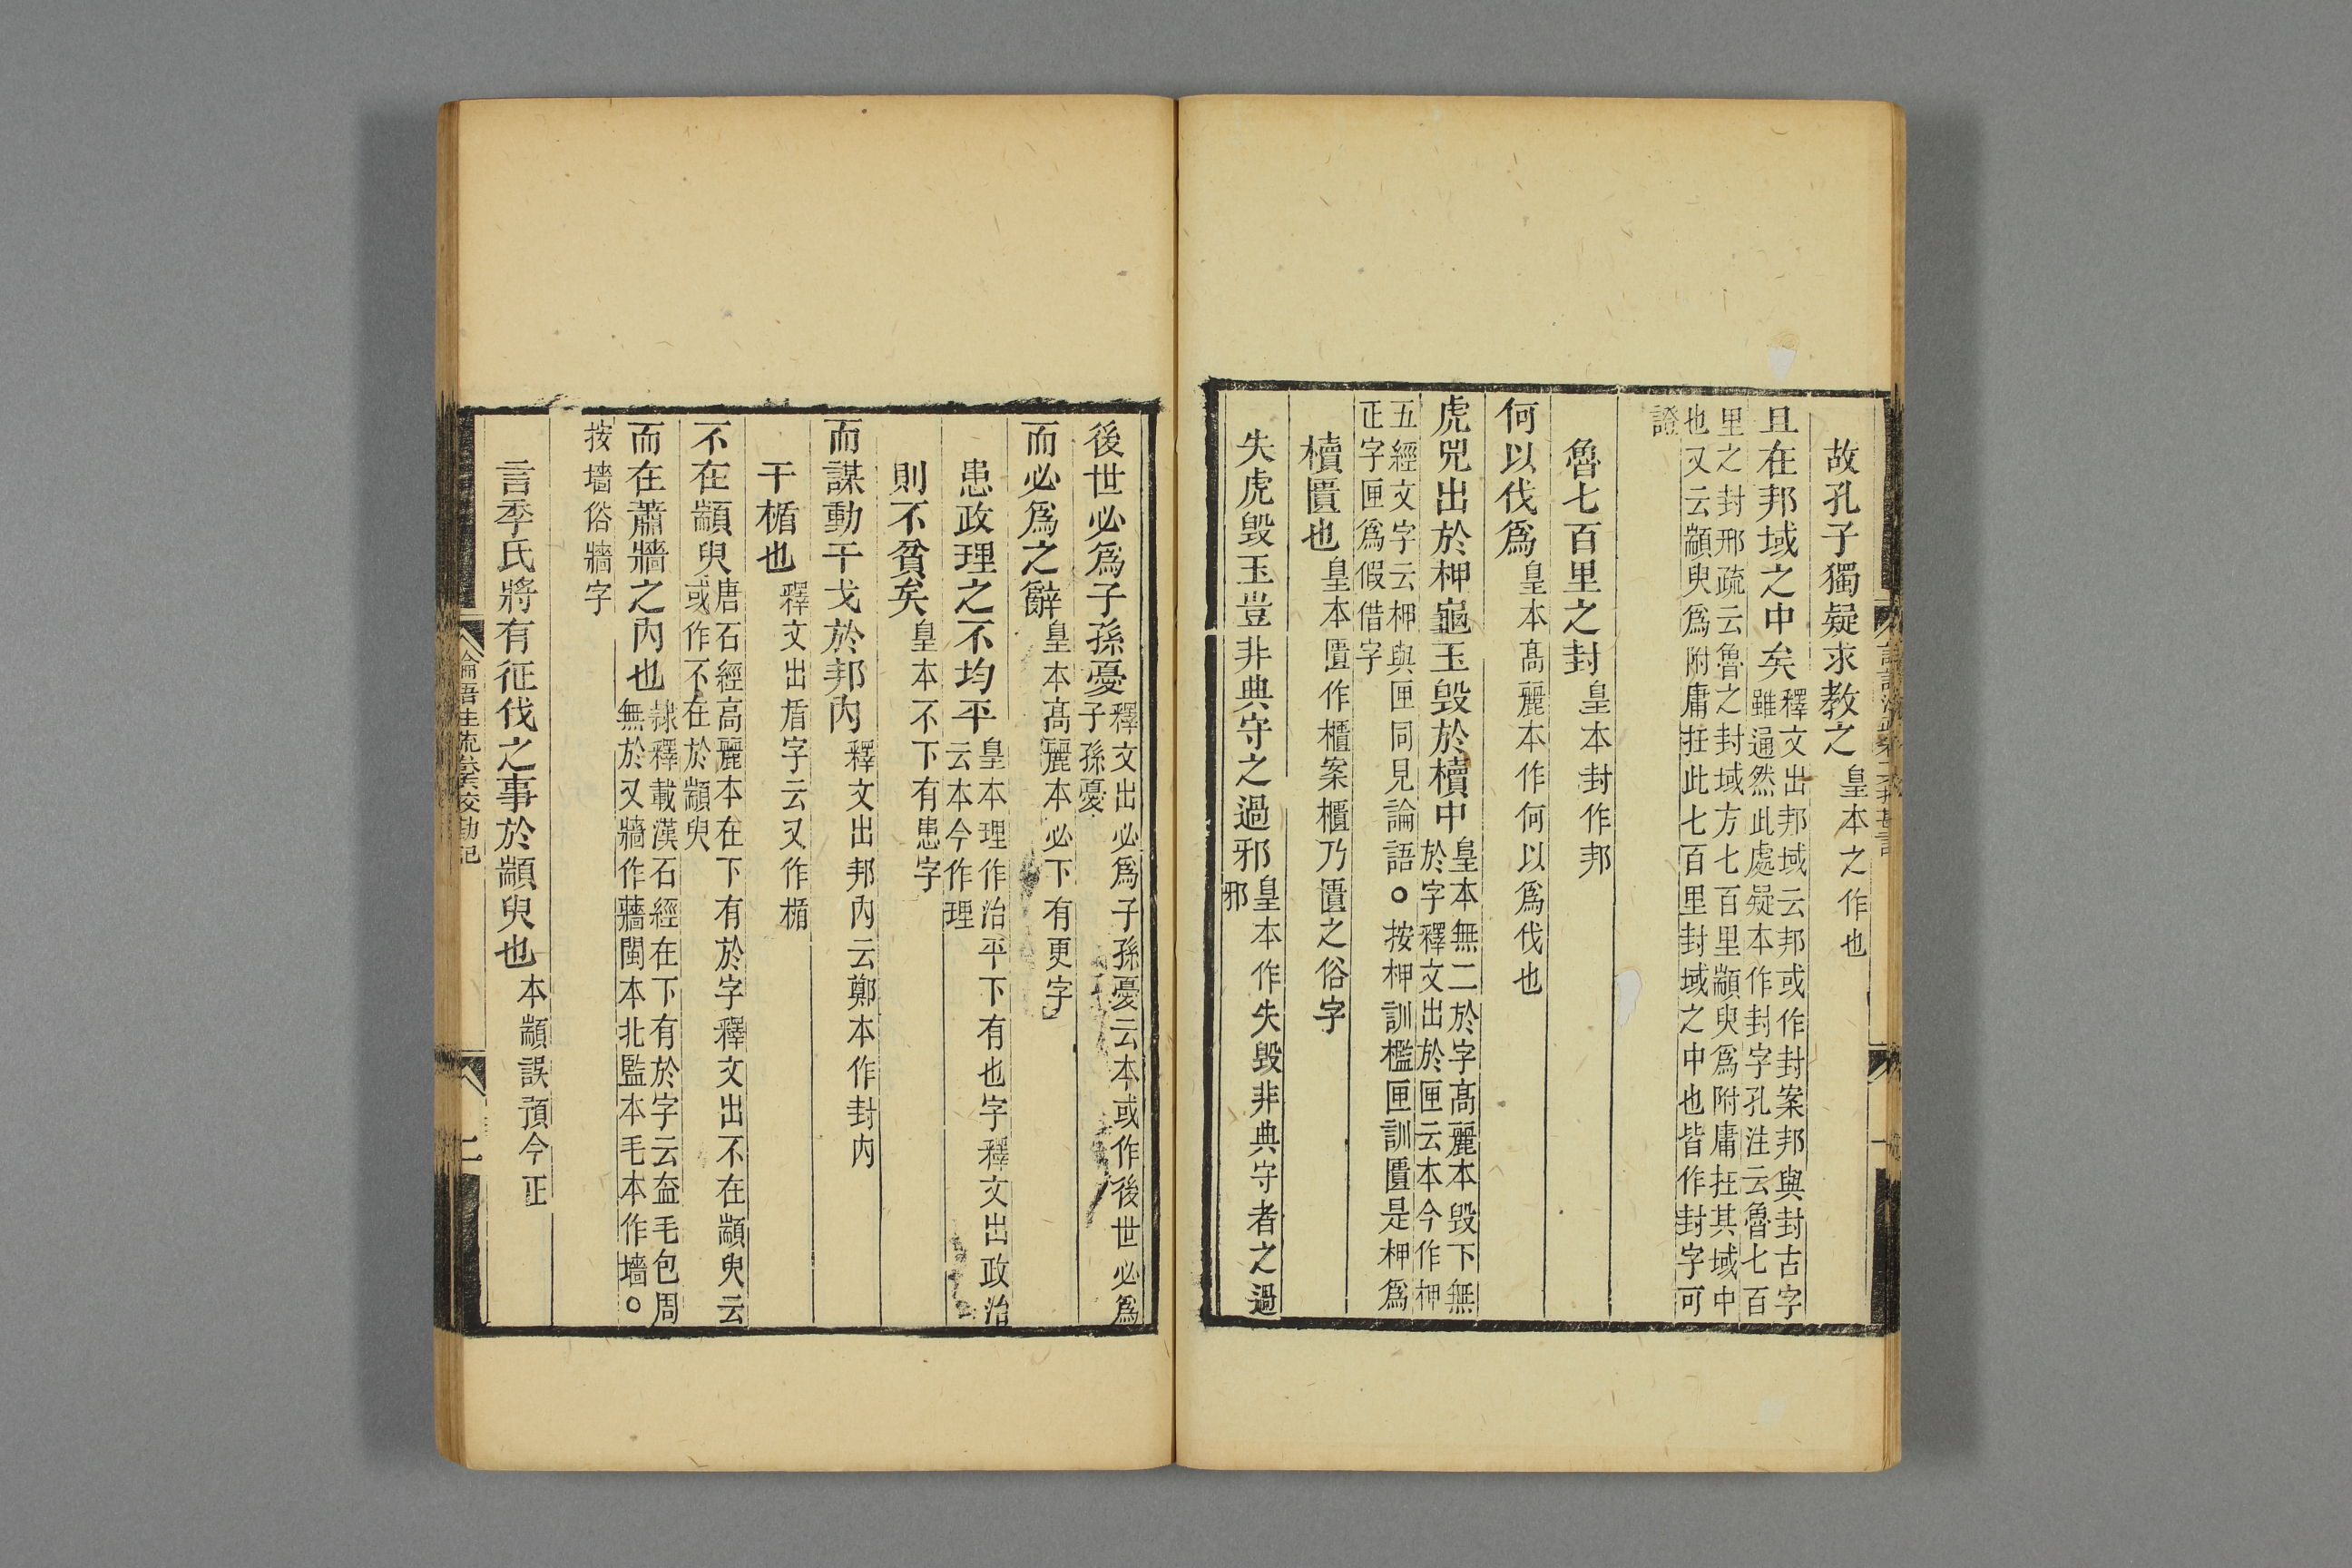 故孔子獨疑求教之皇本之作也
且在邦域之中矣釋文出邦域云邦或作封案邦與封古字
雖通然此處疑本作封字孔注云魯七百
里之封邢疏云魯之封域方七百里顓臾爲附庸在其域中
也又云顓臾爲附庸在此七百里封域之中也皆作封字可
證
魯七百里之封皇本封作邦
何以伐爲皇本高麗本作何以爲伐也
虎兕出於柙龜玉毀於櫝中皇本無二於字高麗本毀下無
於字釋文出於匣云本今作柙
五經文字云柙與匣同見論語○按柙訓檻匣訓匱是柙爲
正字匣爲假借字
櫝匱也皇本匱作櫃案櫃乃匱之俗字
失虎毀玉豈非典守之過邪皇本作失毀非典守者之過
邪
後世必爲子孫憂釋文出必爲子孫憂云本或作後世必爲
子孫憂
而必爲之辭皇本高麗本必下有更字
患政理之不均平皇本理作治平下有也字釋文出政治
云本今作理
則不貧矣皇本不下有患字
而謀動干戈於邦内釋文出邦内云鄭本作封内
干楯也釋文出盾字云又作楯
不在顓臾唐石經高麗本在下有於字釋文出不在顓臾云
或作不在於顓臾
而在蕭牆之内也隸釋載漢石經在下有於字云盍毛包周
無於又牆作蘠閩本北監本毛本作墻○
按墻俗牆字
言季氏將有征伐之事於顓臾也本顓誤預今正
論語注疏卷十六校勘記